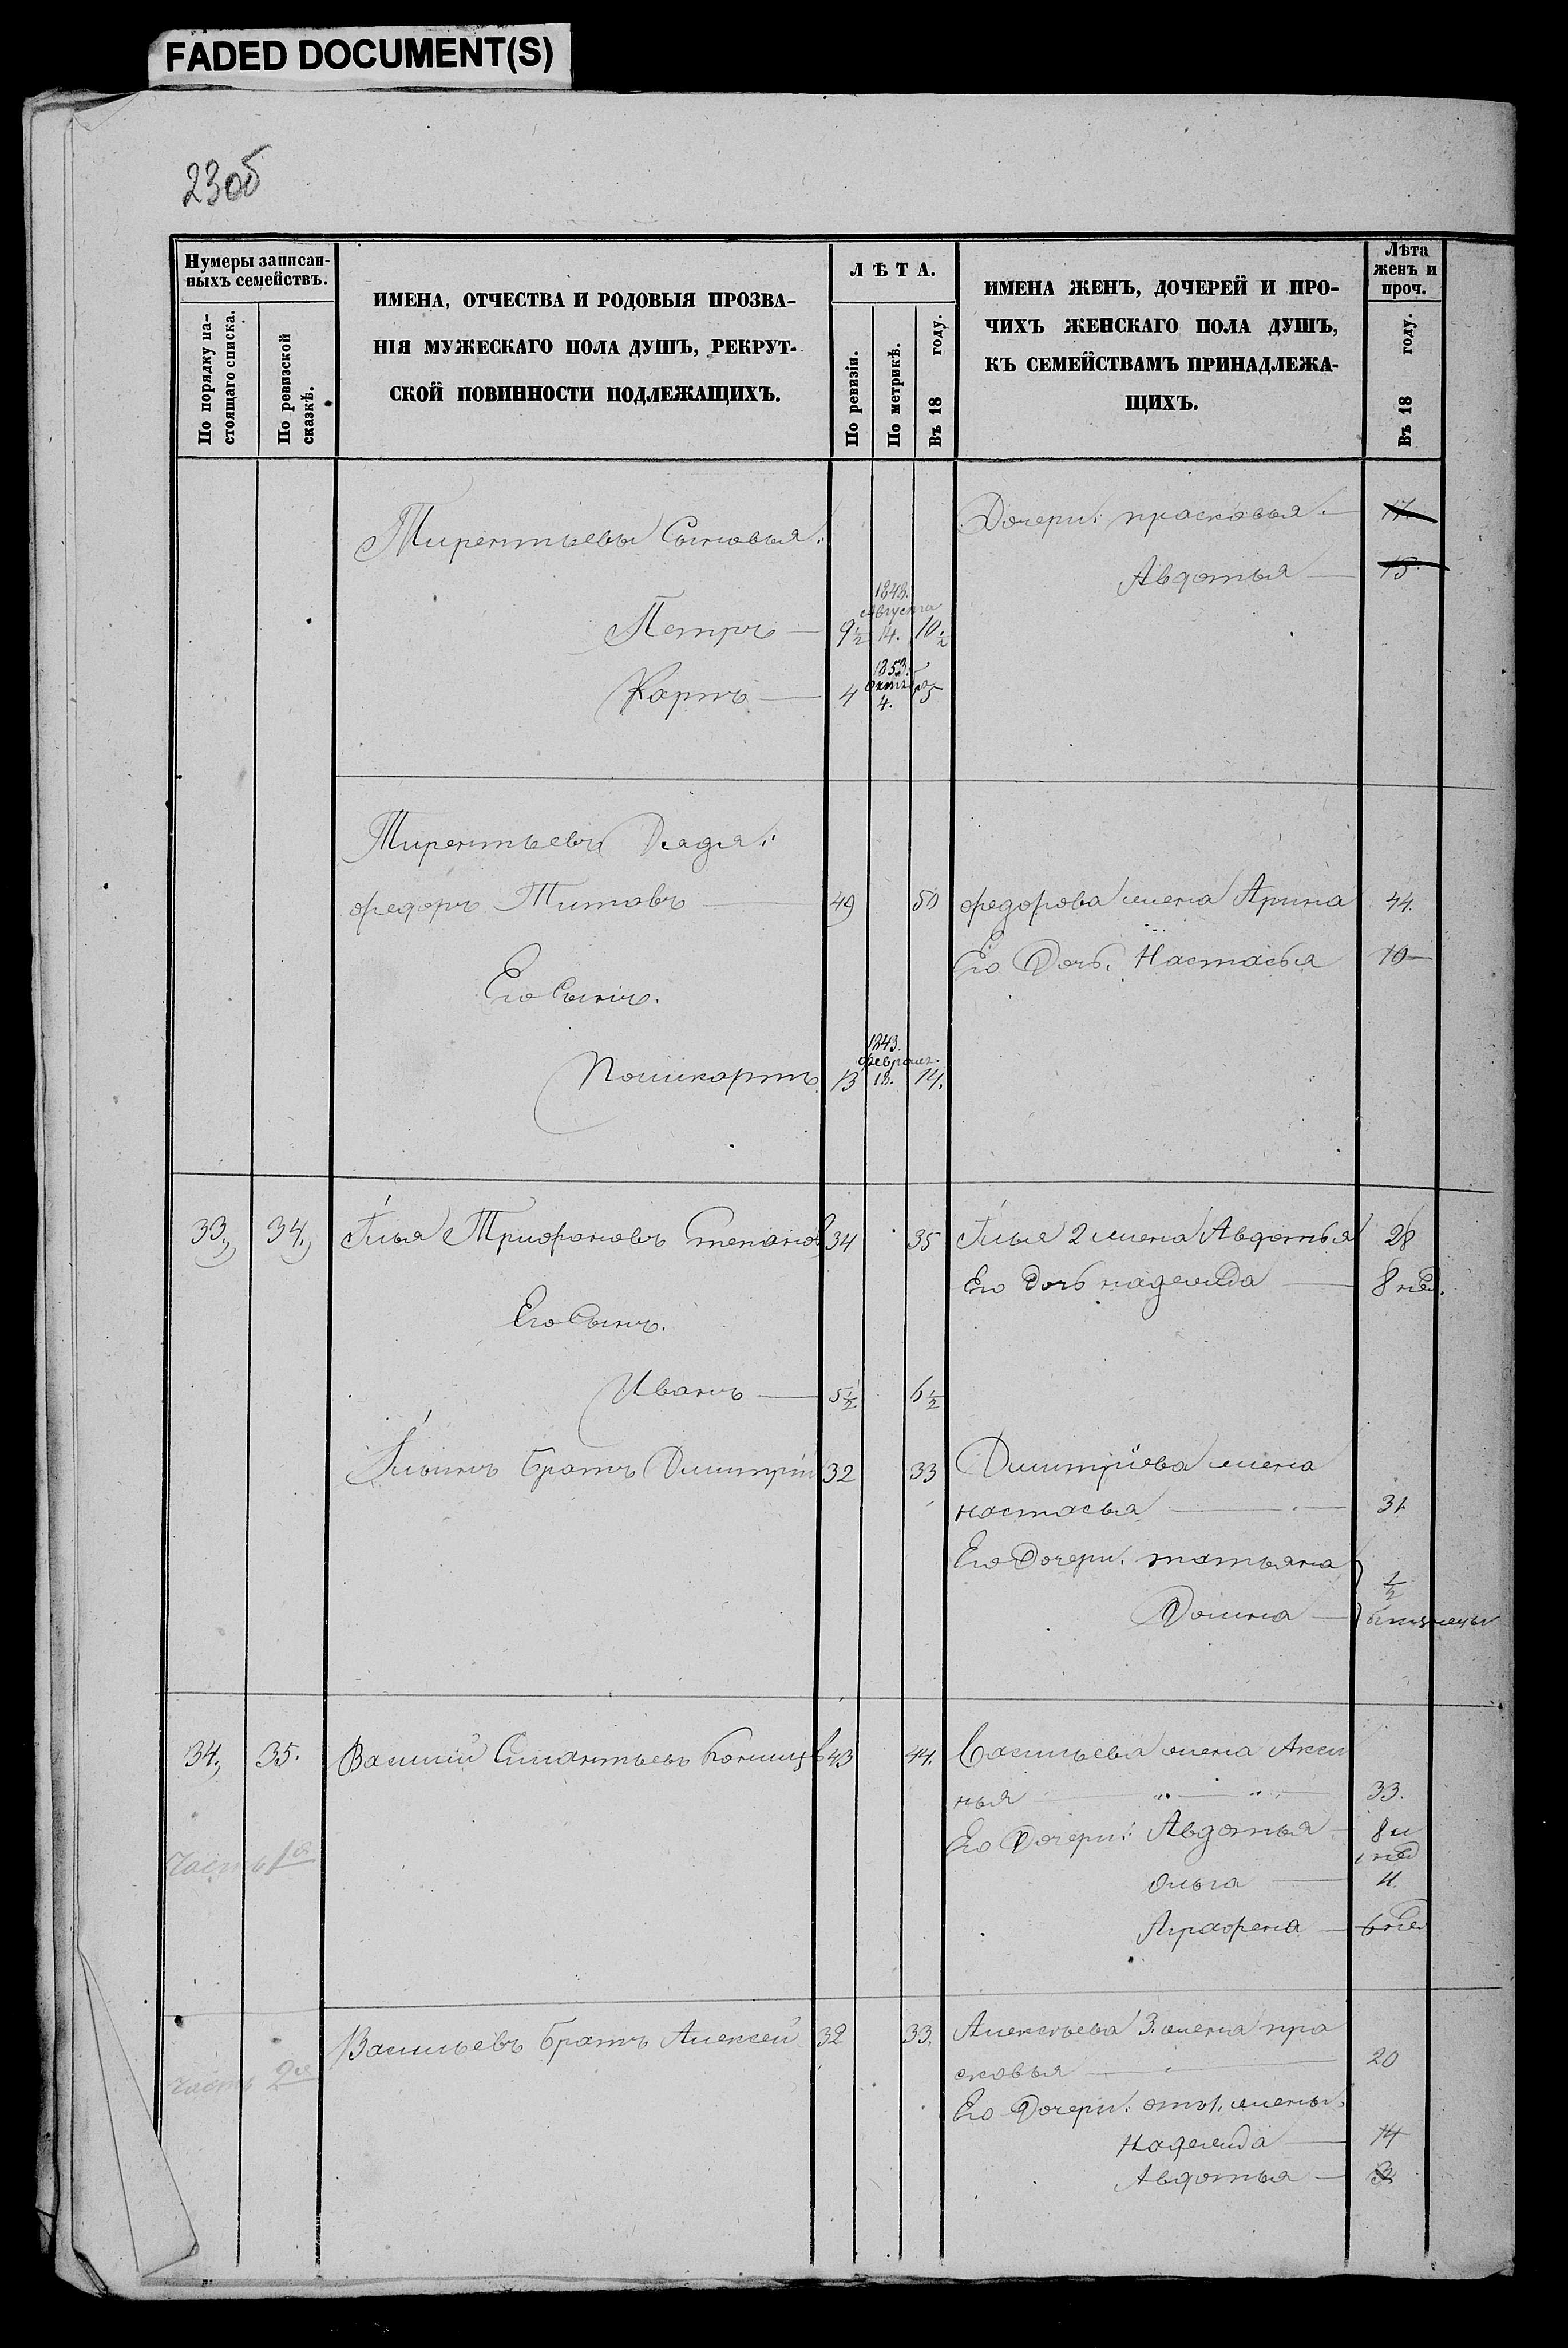 FADED DOCUMENT(S)
23об
Нумеры записан-
ныхъ семействъ.
По порядку на-
стоящаго списка.
По ревизской
сказкѣ.
ИМЕНА, ОТЧЕСТВА И РОДОВЫЯ ПРОЗВА-
НІЯ МУЖЕСКАГО ПОЛА ДУШЪ, РЕКРУТ-
СКОЙ ПОВИННОСТИ ПОДЛЕЖАЩИХЪ.
ЛѢТА.
По ревизіи.
По метрикѣ.
Въ 18 году.
ИМЕНА ЖЕНЪ, ДОЧЕРЕЙ И ПРО-
ЧИХЪ ЖЕНСКАГО ПОЛА ДУШЪ,
КЪ СЕМЕЙСТВАМЪ ПРИНАДЛЕЖА-
ЩИХЪ.
Лѣта
женъ и
проч.
Въ 18 году.
Тирентьевы Сыновья:
Дочери: прасковья. 17.
Авдотья 13.
1848.
Августа
Петръ 9½ 14. 10½
1853.
Октября
Карпъ 4 4. 5
Тирентьевъ Дядя:
федоръ Титовъ 49 50 федорова жена Арина 44.
Его Дочь. Настасья 10
Его Сынъ.
1843.
Февраля
Поликарпъ 13 18. 14.
33. 34. Илья Трифоновъ Степановъ 34 35 Ильи 2 жена Авдотья 28
Его дочь надежда 8 нед.
Его Сынъ.
Иванъ 5½ 6½
Ильинъ братъ Димитрій 32 33 Димитріева жена
настасья 31.
Его Дочери. татьяна ½
Домна близнецы
34. 35. Василій Силантьевъ 43 44. Васильева жена Акси
нья 33.
Его Дочери: Авдотья 8 и
1 нед
Ольга 4
Аграфена 6 нед
часть 1я
Васильевъ братъ Алексей 32 33. Алексѣева 3. жена пра
сковья 20
часть 2я
Его Дочери. отъ 1. жены.
надежда 14
Авдотья 3